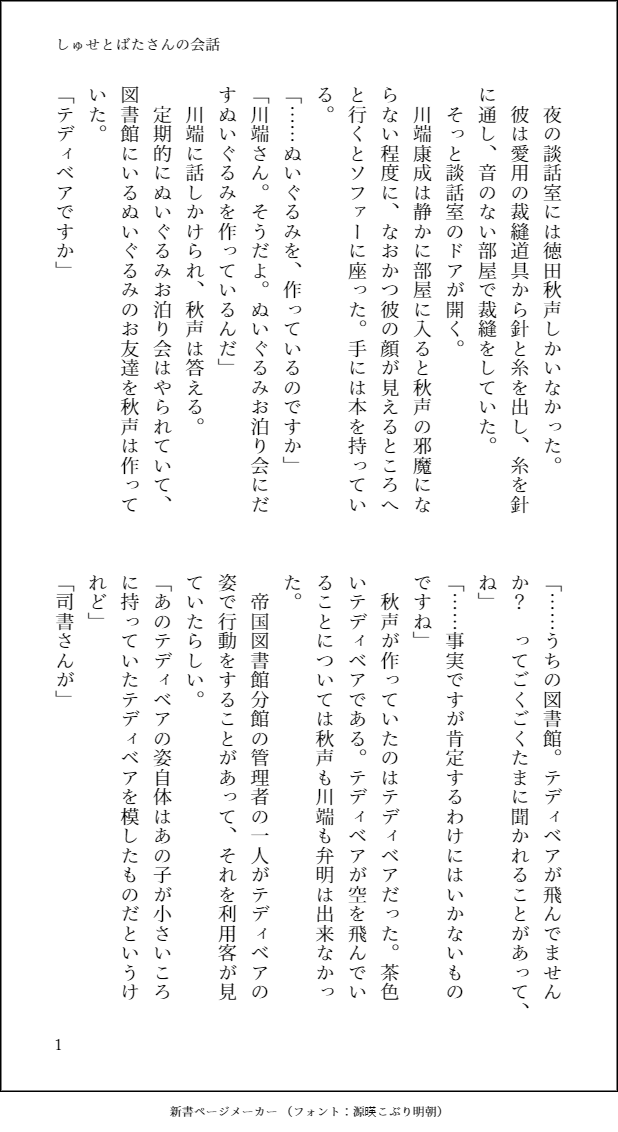 しゅせとばたさんの会話
　夜の談話室には徳田秋声しかいなかった。
　彼は愛用の裁縫道具から針と糸を出し、糸を針
に通し、音のない部屋で裁縫をしていた。
　そっと談話室のドアが開く。
　川端康成は静かに部屋に入ると秋声の邪魔にな
らない程度に、なおかつ彼の顔が見えるところへ
と行くとソファーに座った。手には本を持ってい
る。
「……ぬいぐるみを、作っているのですか」
「川端さん。そうだよ。ぬいぐるみお泊り会にだ
すぬいぐるみを作っているんだ」
　川端に話しかけられ、秋声は答える。
　定期的にぬいぐるみお泊り会はやられていて、
図書館にいるぬいぐるみのお友達を秋声は作って
いた。
「テディベアですか」
「……うちの図書館。テディベアが飛んでません
か？　ってごくごくたまに聞かれることがあって、
ね」
「……事実ですが肯定するわけにはいかないもの
ですね」
　秋声が作っていたのはテディベアだった。茶色
いテディベアである。テディベアが空を飛んでい
ることについては秋声も川端も弁明は出来なかっ
た。
　帝国図書館分館の管理者の一人がテディベアの
姿で行動をすることがあって、それを利用客が見
ていたらしい。
「あのテディベアの姿自体はあの子が小さいころ
に持っていたテディベアを模したものだというけ
れど」
「司書さんが」
1
新書ページメーカー（フォント：源暎こぶり明朝）